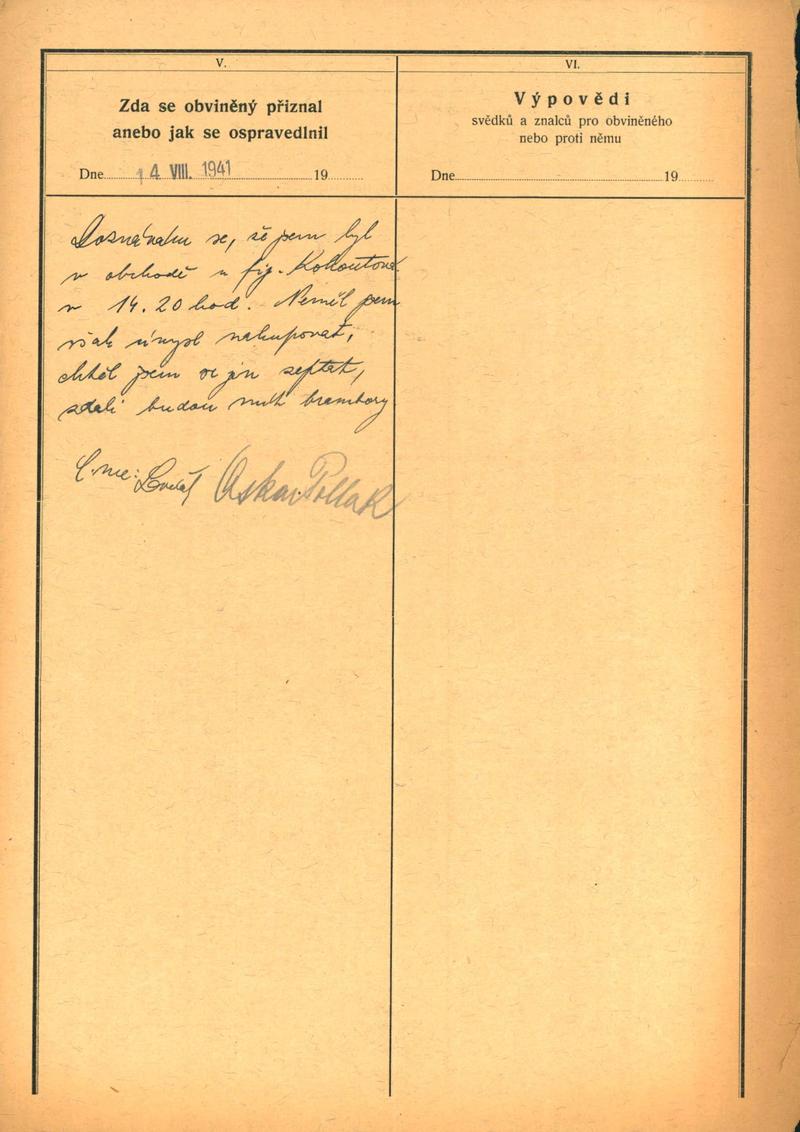 V.
Zda se obviněný přiznal
anebo jak se ospravedlnil
Dne 14 VIII. 1941 19
VI.
Výpovědi
svědků a znalců pro obviněného
nebo proti němu
Dne 19
Doznávám se, že jsem byl
v obchodě u fy. Kohoutová
v 14.20 hod. Neměl jsem
však úmysl nakupovat,
chtěl jsem se jen zeptat,
zdali budou míti brambory
Oskar Pollak